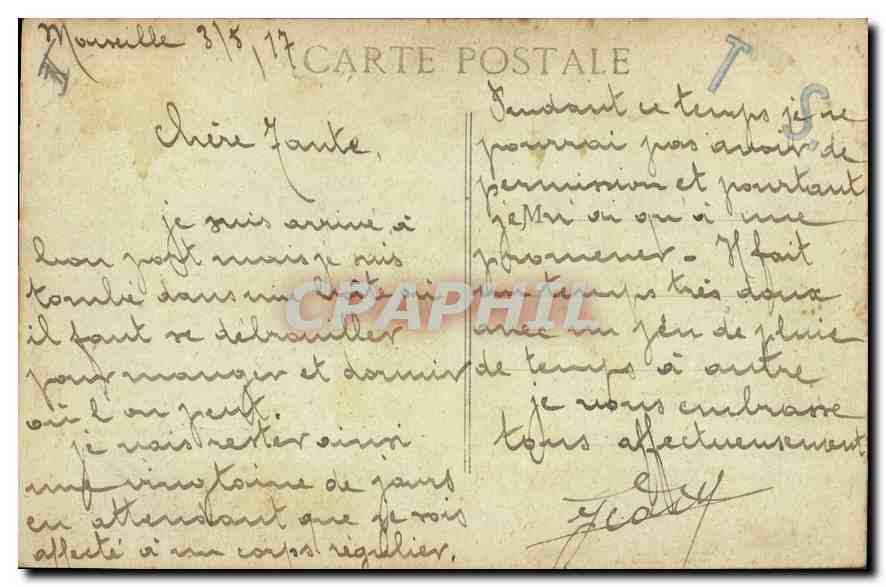 Marseille 3/5/17
CARTE POSTALE
T S
Chère Tante,
je suis arrivé à
bon port mais je suis
tombé dans une boîte où
il faut se débrouiller
pour manger et dormir
où l'on peut.
je vais rester ainsi
une vingtaine de jours
en attendant que je sois
affecté à un corps régulier.
Pendant ce temps je ne
pourrai pas avoir de
permission et pourtant
je n'ai qu'à me
promener. Il fait
un temps très doux
avec un peu de pluie
de temps à autre
je vous embrasse
tous affectueusement
CPAPHIL